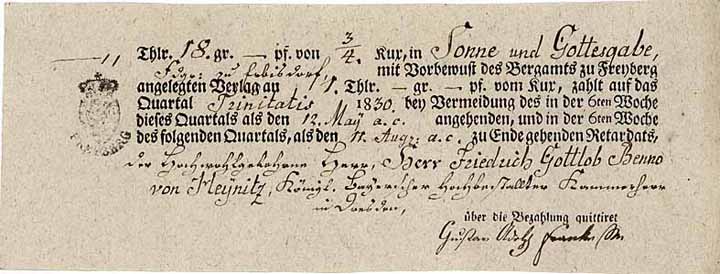 — " Thlr. 18. gr. — pf. von 3/4. Kux, in Sonne und Gottesgabe,
Fdgr: zu Erbisdorf, mit Vorbewust des Bergamts zu Freyberg
angelegten Verlag an 1. Thlr. — gr. — pf. vom Kux, zahlt auf das
Quartal Trinitatis 1830. bey Vermeidung des in der 6ten Woche
dieses Quartals als den 12. May a. c. angehenden, und in der 6ten Woche
des folgenden Quartals, als den 11. Aug: a. c. zu Ende gehenden Retardats,
der Hochwohlgebohrne Herr, Herr Friedrich Gottlob Benno
von Heynitz, Königl. Bayerischer Hochbestallter Kammerherr
in Dresden,
über die Bezahlung quittiret
Gustav Adolph
FREYBERG